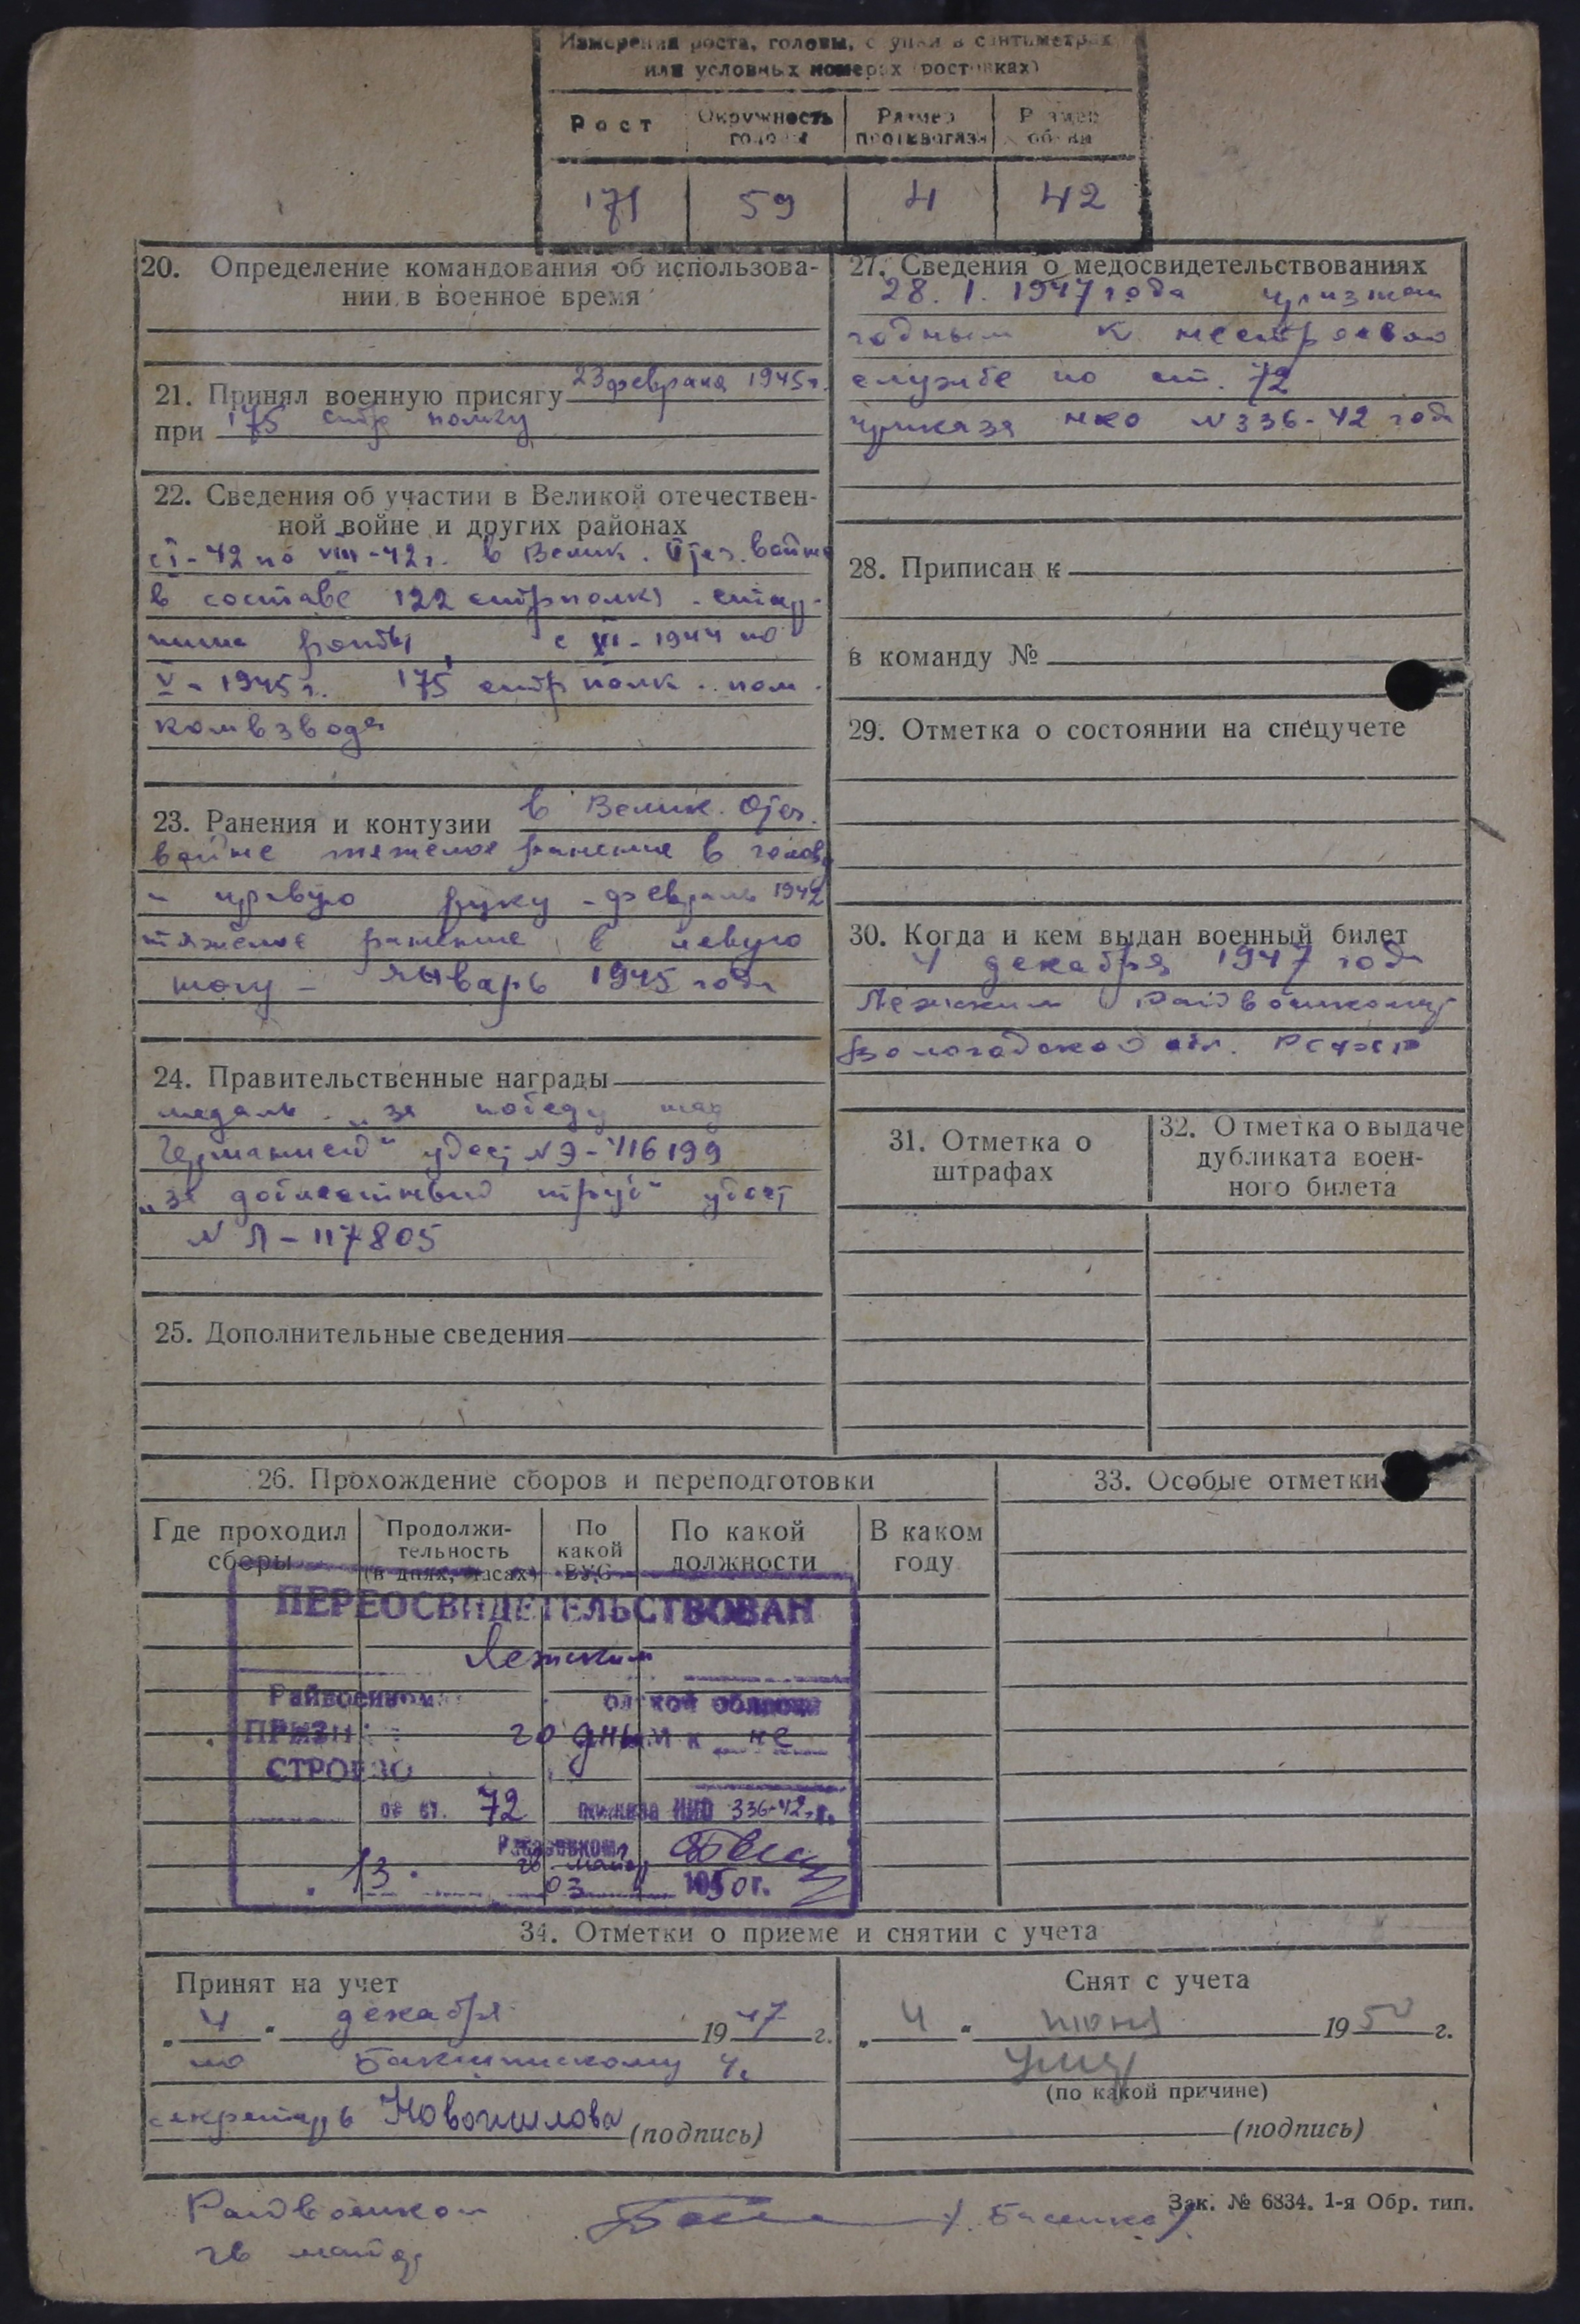 Измерения роста, головы, ступни в сантиметрах
или условных номерах (ростовках)
Рост
Окружность головы
Размер противогаза
Размер обуви
171
59
4
42
20. Определение командования об использова-
нии в военное время
21. Принял военную присягу 23 февраля 1945 г.
при 175 стр полку
22. Сведения об участии в Великой отечествен-
ной войне и других районах
с I-42 по VIII-42 г. в Велик. Отеч. войне
в составе 122 стрполка - стар-
шина роты, с XI-1944 по
V-1945 г. 175 стр полк. пом.
комвзвода
23. Ранения и контузии в Велик. Отеч.
войне тяжелое ранение в голову
и правую руку - февраль 1942
тяжелое ранение в левую
ногу - январь 1945 года
24. Правительственные награды
медаль „за победу над
Германией“ удост № Э-416199
„за доблестный труд“ удост
№ Л-117805
25. Дополнительные сведения
27. Сведения о медосвидетельствованиях
28. I. 1947 года признан
годным к нестроевой
службе по ст. 72
приказа НКО № 336-42 года
28. Приписан к
в команду №
29. Отметка о состоянии на спецучете
30. Когда и кем выдан военный билет
4 декабря 1947 года
Лежским Райвоенкомат
Вологодской обл. РСФСР
31. Отметка о
штрафах
32. Отметка о выдаче
дубликата воен-
ного билета
26. Прохождение сборов и переподготовки
Где проходил
сборы
Продолжи-
тельность
(в днях, часах)
По
какой
ВУС
По какой
должности
В каком
году
33. Особые отметки
ПЕРЕОСВИДЕТЕЛЬСТВОВАН
Лежским
Райвоенкомат области
ПРИЗН годным к не
СТРОЕВО
по ст. 72 приказа НКО 336-42 г.
Райвоенком
гв майор
13. 03 1950 г.
34. Отметки о приеме и снятии с учета
Принят на учет
„4“ декабря 1947 г.
по
секретарь
(подпись)
Снят с учета
„4“ июня 1950 г.
(по какой причине)
(подпись)
Зак. № 6834. 1-я Обр. тип.
Райвоенком
гв майор